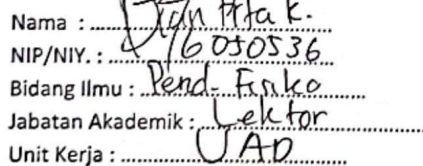 Nama : Dian Arta K.
NIP/NIY. : 16050536
Bidang Ilmu : Pend. Fisika
Jabatan Akademik : Lektor
Unit Kerja : UAD